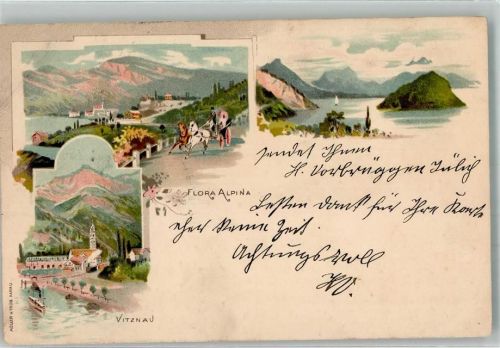 FLORA ALPINA
VITZNAU
sendet Ihnen
H. Vorbrüggen Jülich
Besten dank für Ihre Karte
eher keine Zeit.
Achtungsvoll